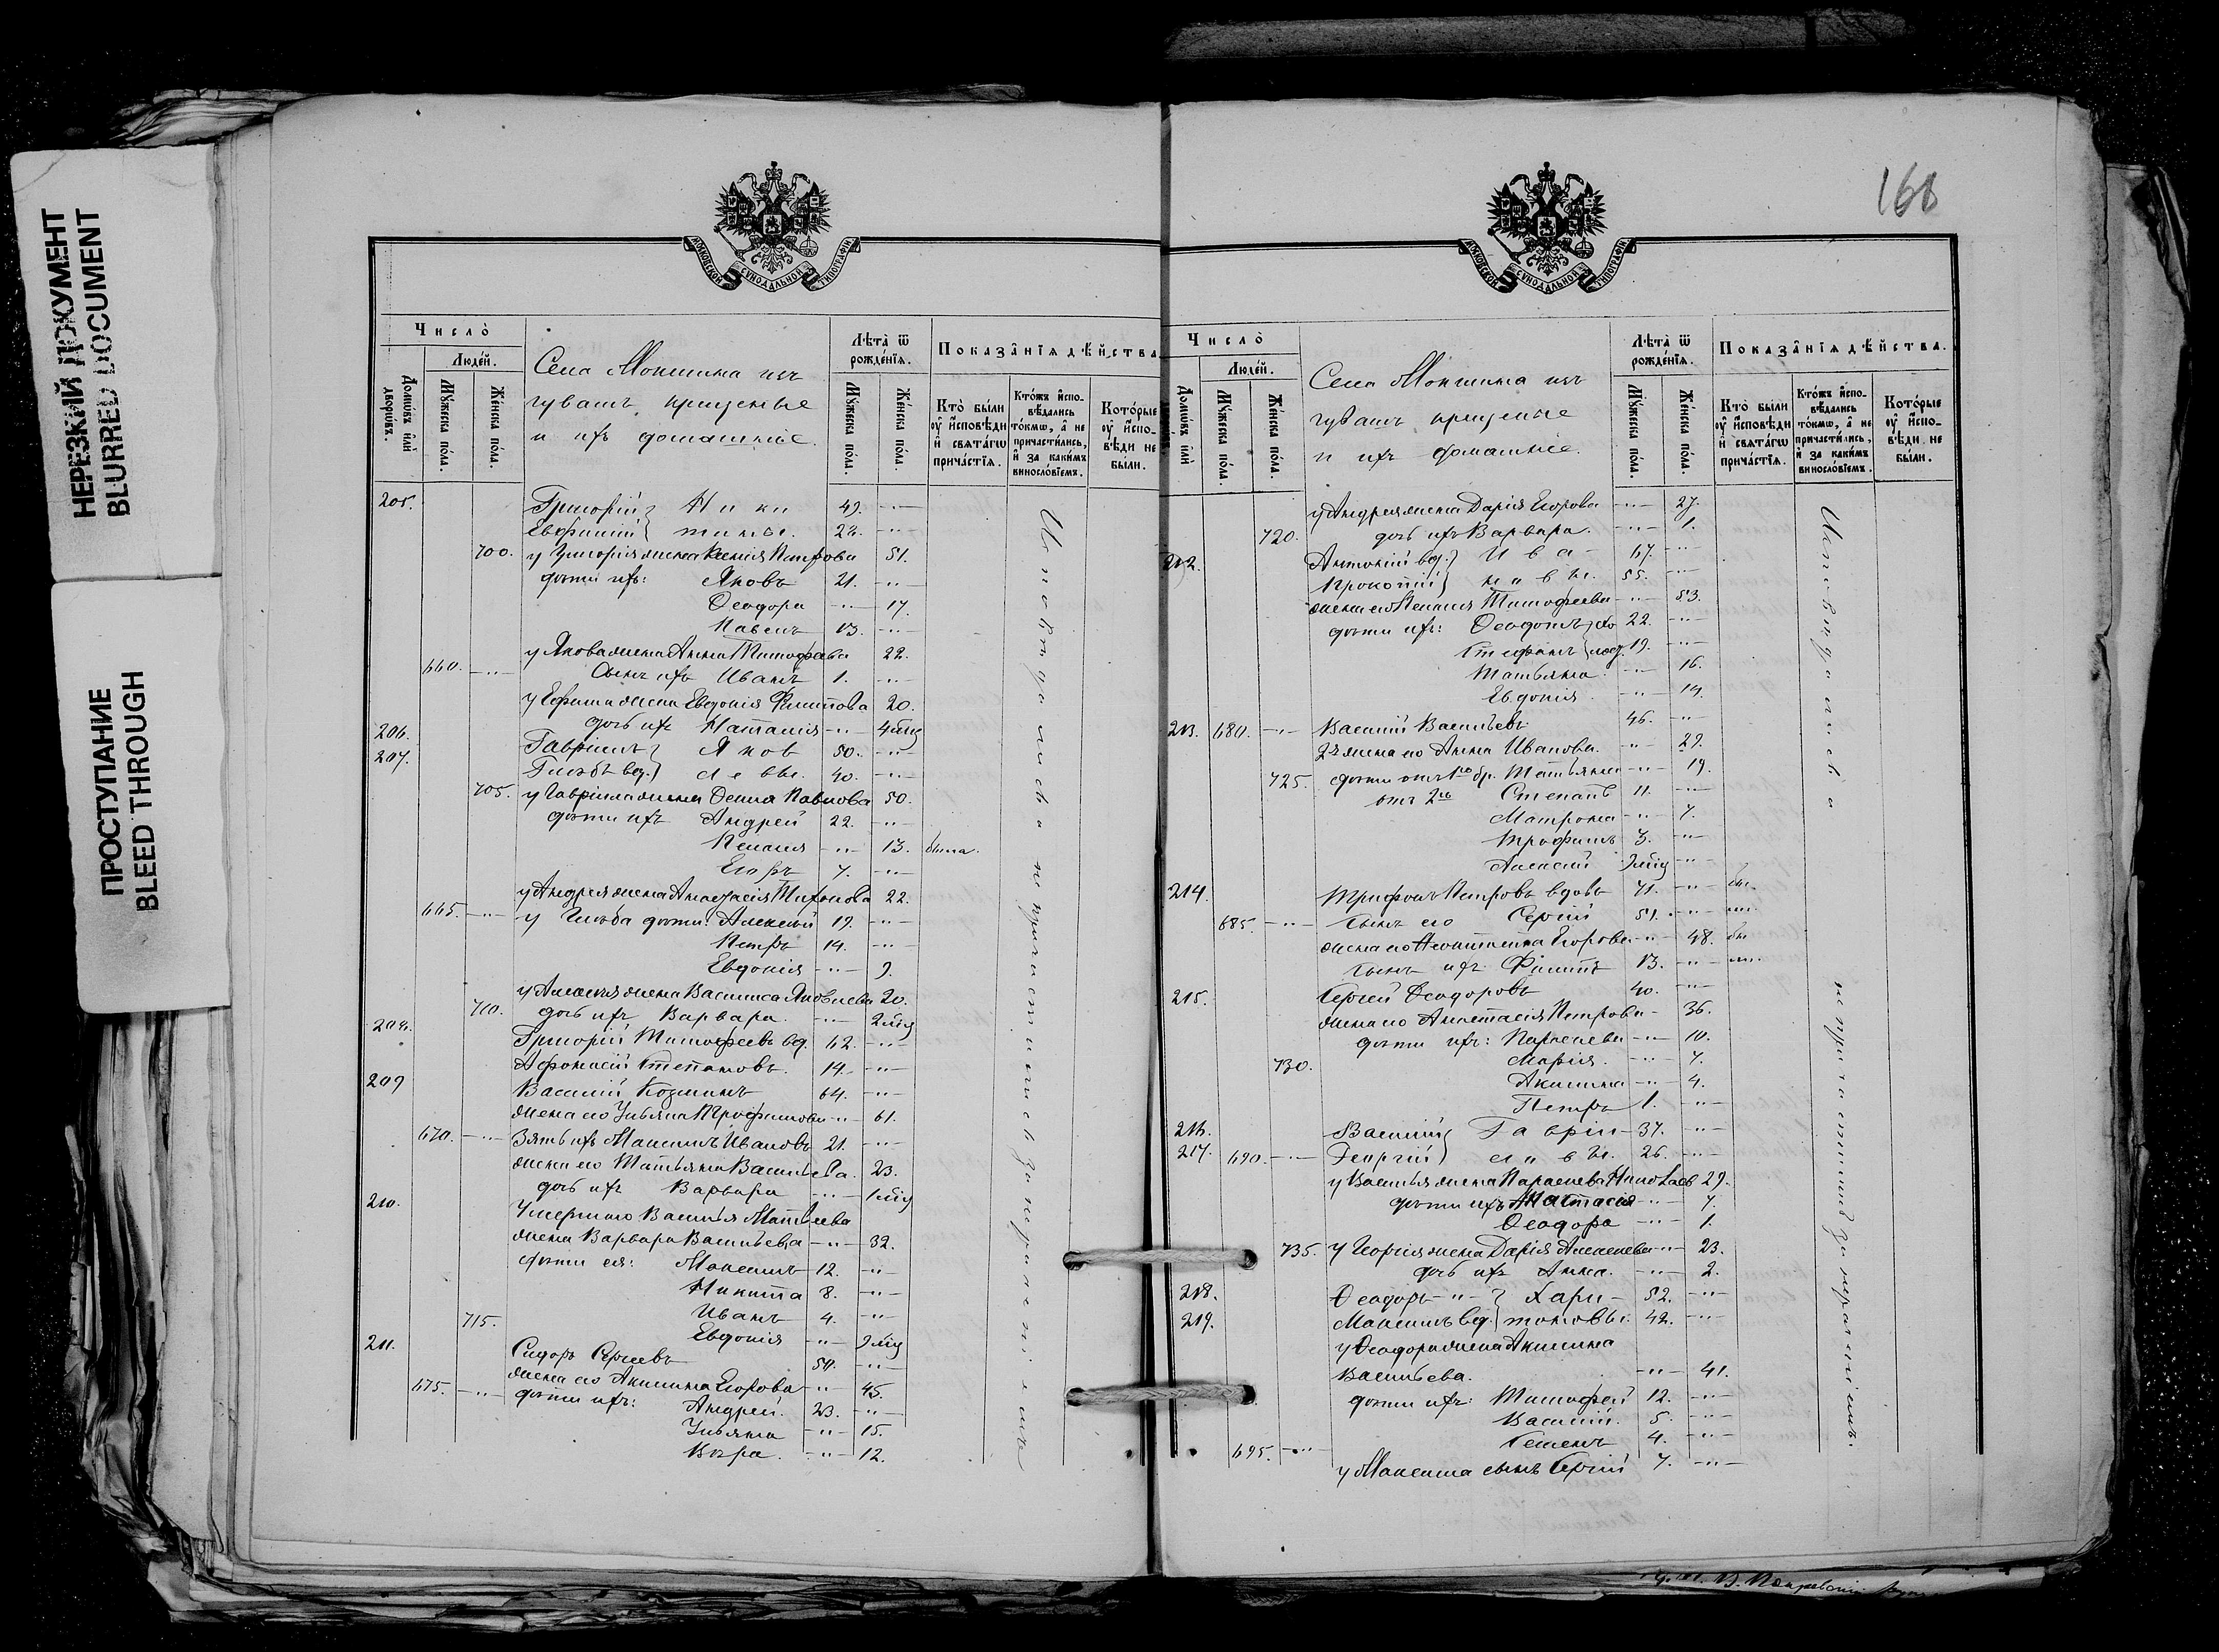 НЕРЕЗКИЙ ДОКУМЕНТ
BLURRED DOCUMENT
ПРОСТУПАНИЕ
BLEED THROUGH
МОСКОВСКОЙ СѴНОДАЛЬНОЙ ТИПОГРАФІИ
Число̀
Людѐй.
Домѡ́въ и҆лѝ дворѡ́въ.
Мꙋ́жеска по́ла.
Же́нска по́ла.
Села Мокшина изъ
чувашъ крещеные
и ихъ домашніе.
Лѣ́та ѿ рожде́нїѧ.
Мꙋ́жеска по́ла.
Же́нска по́ла.
Показа̂нїѧ дѣ́йства
Кто̀ бы́ли ᲂу҆ и҆сповѣди и҆ свѧта́гѡ прича́стїѧ.
Кто́жъ и҆сповѣдались то́кмѡ, а҆ не причасти́лись, и҆ за каки́мъ винослѡ́вїемъ.
Кото́рые ᲂу҆ и҆сповѣди не бы́ли.
205. Григорій } Ники 49. -"-
Евфимій } тины. 22. -"-
700. у Григорія жена Ксенія Петрова 51.
дѣти ихъ: Яковъ 21. -"-
Ѳеодора -"- 17.
Павелъ 13. -"-
у Якова жена Анна Тимофѣева 22.
660. -"- Сынъ ихъ Иванъ 1. -"-
у Ефима жена Евдокія Филиппова 20.
дочь ихъ Наталія -"- 4 мѣц
206. Гавріилъ } Яков 50. -"-
207. Глѣбъ вд. } левы. 40. -"-
705. у Гавріила жена Ѳекла Павлова 50.
дѣти ихъ Андрей 22. -"-
Пелагія -"- 13. была.
Егоръ 7. -"-
у Андрея жена Анастасія Тихонова 22.
665. -"- у Глѣба дѣти: Алексій 19. -"-
Петръ 14. -"-
Евдокія -"- 9.
у Алексія жена Василиса Яковлева 20.
710. дочь ихъ Варвара. -"- 2 мѣц
208. Григорій Тимофѣевъ вд. 62. -"-
Афонасій Степановъ. 14. -"-
209 Василій Козминъ 64. -"-
жена его Ульяна Трофимова -"- 61.
670. -"- Зять ихъ Максимъ Ивановъ 21. -"-
жена его Татьяна Васильева. 23.
дочь ихъ Варвара -"- 1 мѣц
210. Умершаго Василья Матвѣева
жена Варвара Васильева -"- 32.
дѣти ея: Максимъ 12. -"-
Никита 8. -"-
Иванъ 4. -"-
715. Евдокія -"- 9 мѣц
211. Сидоръ Сергѣевъ 50. -"-
жена его Акилина Егорова -"- 45.
675. -"- дѣти ихъ: Андрей. 23. -"-
Ульяна -"- 15.
Вѣра. -"- 12.
Исповѣдались а не причастились за нераченіемъ
166
МОСКОВСКОЙ СѴНОДАЛЬНОЙ ТИПОГРАФІИ
Число̀
Людѐй.
Домѡ́въ и҆лѝ
Мꙋ́жеска по́ла.
Же́нска по́ла.
Села Мокшина изъ
чувашъ крещеные
и ихъ домашніе.
Лѣ́та ѿ рожде́нїѧ.
Мꙋ́жеска по́ла.
Же́нска по́ла.
Показа̂нїѧ дѣ́йства.
Кто̀ бы́ли ᲂу҆ и҆сповѣди и҆ свѧта́гѡ прича́стїѧ.
Кто́жъ и҆сповѣдались то́кмѡ, а҆ не причасти́лись, и҆ за каки́мъ винослѡ́вїемъ.
Кото́рые ᲂу҆ и҆сповѣди не бы́ли.
у Андрея жена Дарія Егорова -"- 27.
720. дочь ихъ Варвара. -"- 1.
212. Антоній вд. } Ива- 67. -"-
Прокопій } новы. 55. -"-
жена его Пелагія Тимофѣева -"- 53.
дѣти ихъ: Ѳеодотъ 22. -"-
Стефанъ 19. -"-
Татьяна. -"- 16.
Евдокія -"- 14.
213. 680. -"- Василій Васильевъ 46. -"-
2я жена его Анна Иванова. -"- 29.
725. дѣти отъ 1го бр. Татьяна -"- 19.
отъ 2го Степанъ 11. -"-
Матрона -"- 7.
Трофимъ 3. -"-
Алексій 9 мѣц -"-
214. Трифонъ Петровъ вдовъ 71. -"- бы.
685. -"- Сынъ его Сергій 51. -"-
жена его Егорова -"- 48. бы
Сынъ ихъ Филиппъ 13. -"-
215. Сергій Ѳеодоровъ 40. -"-
жена его Анастасія Петрова - 36.
дѣти ихъ: Параскева -"- 10.
730. Марія. -"- 7.
Акилина -"- 4.
Петръ 1. -"-
216. Василій } Гаврі- 37. -"-
217. 690. -"- Георгій } ловы. 26. -"-
у Василья жена Параскева Николаев 29.
дѣти ихъ Настасія -"- 7.
Ѳеодора -"- 1.
735. у Георгія жена Дарія Алексѣева -"- 23.
дочь ихъ Анна. -"- 2.
218. Ѳеодоръ -"- } Хари- 52. -"-
219. Максимъ вд. } тоновы. 42. -"-
у Ѳеодора жена Акилина
Васильева. -"- 41.
дѣти ихъ: Тимофѣй 12. -"-
Василій. 5. -"-
Семенъ 4. -"-
695. -"- у Максима сынъ Сергій 7. -"-
Исповѣдались а не причастились за нераченіемъ.